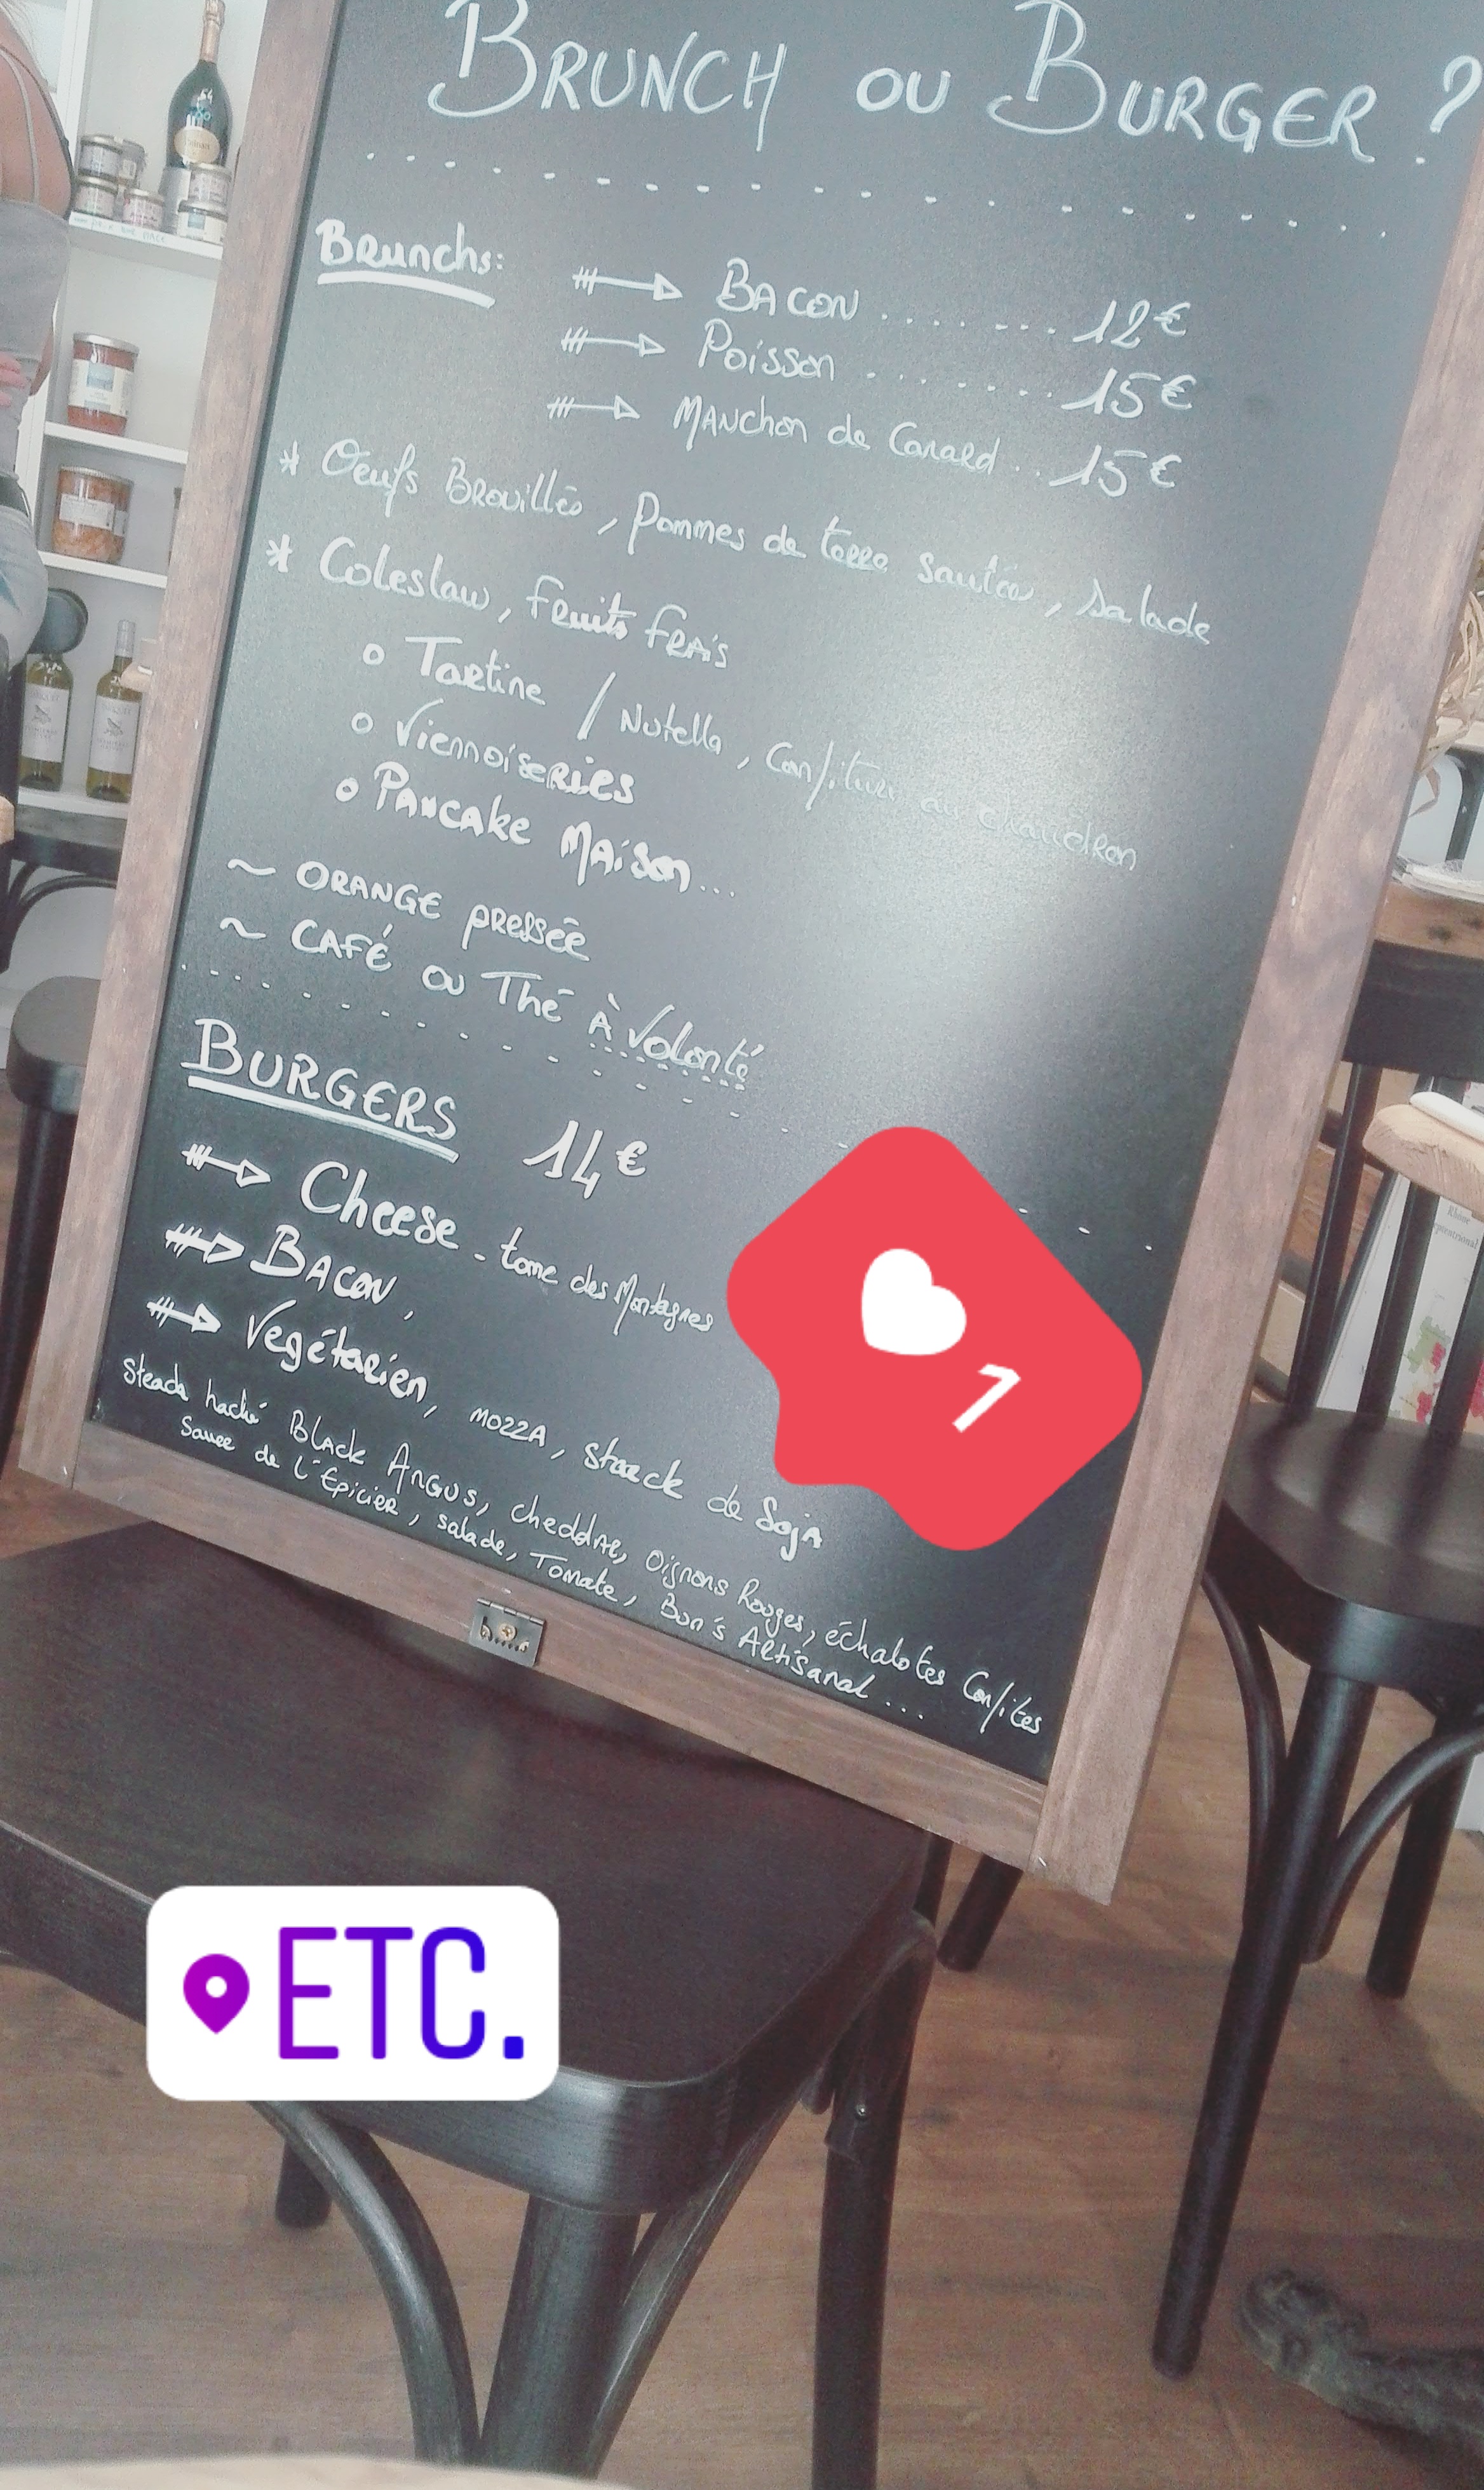 BRUNCH OU BURGER ?
Brunchs:
BACON ........ 12€
Poisson ........ 15€
MANchon de Canard .. 15€
* Oeufs Brouillés, Pommes de terre sautées, Salade
* Coleslaw, fruits frais
o Tartine / Nutella, Confiture au chaudron
o Viennoiseries
o PANcake MAison...
~ ORANGE pressée
~ CAFÉ ou Thé À volonté
BURGERS 14€
Cheese - tome des Montagnes
BACON,
Végétarien, MOZZA, Steack de SojA
Steack haché BLack ANGUS, cheddAR, Oignons Rouges, échalotes Confites
Sauce de L'Epicier, salade, Tomate, Bun's Artisanal ...
1
ETC.